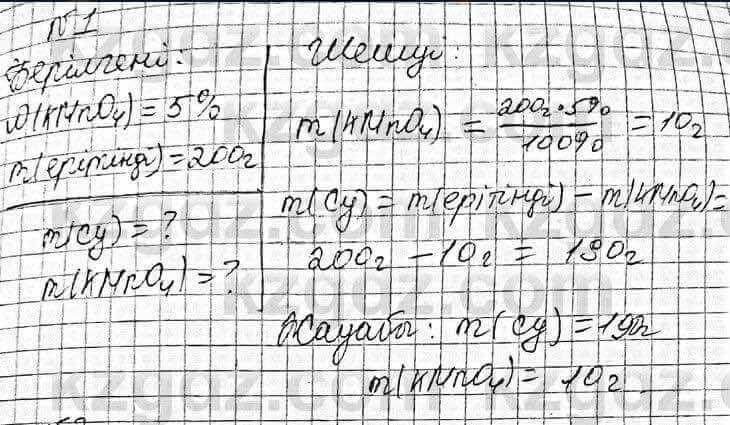 №1
Берілгені:
ω(KMnO₄) = 5%
m(ерітінді) = 200г
m(су) = ?
m(KMnO₄) = ?
Шешуі:
m(KMnO₄) = 200г · 5% / 100% = 10г
m(су) = m(ерітінді) − m(KMnO₄) =
200г − 10г = 190г
Жауабы: m(су) = 190г
m(KMnO₄) = 10г